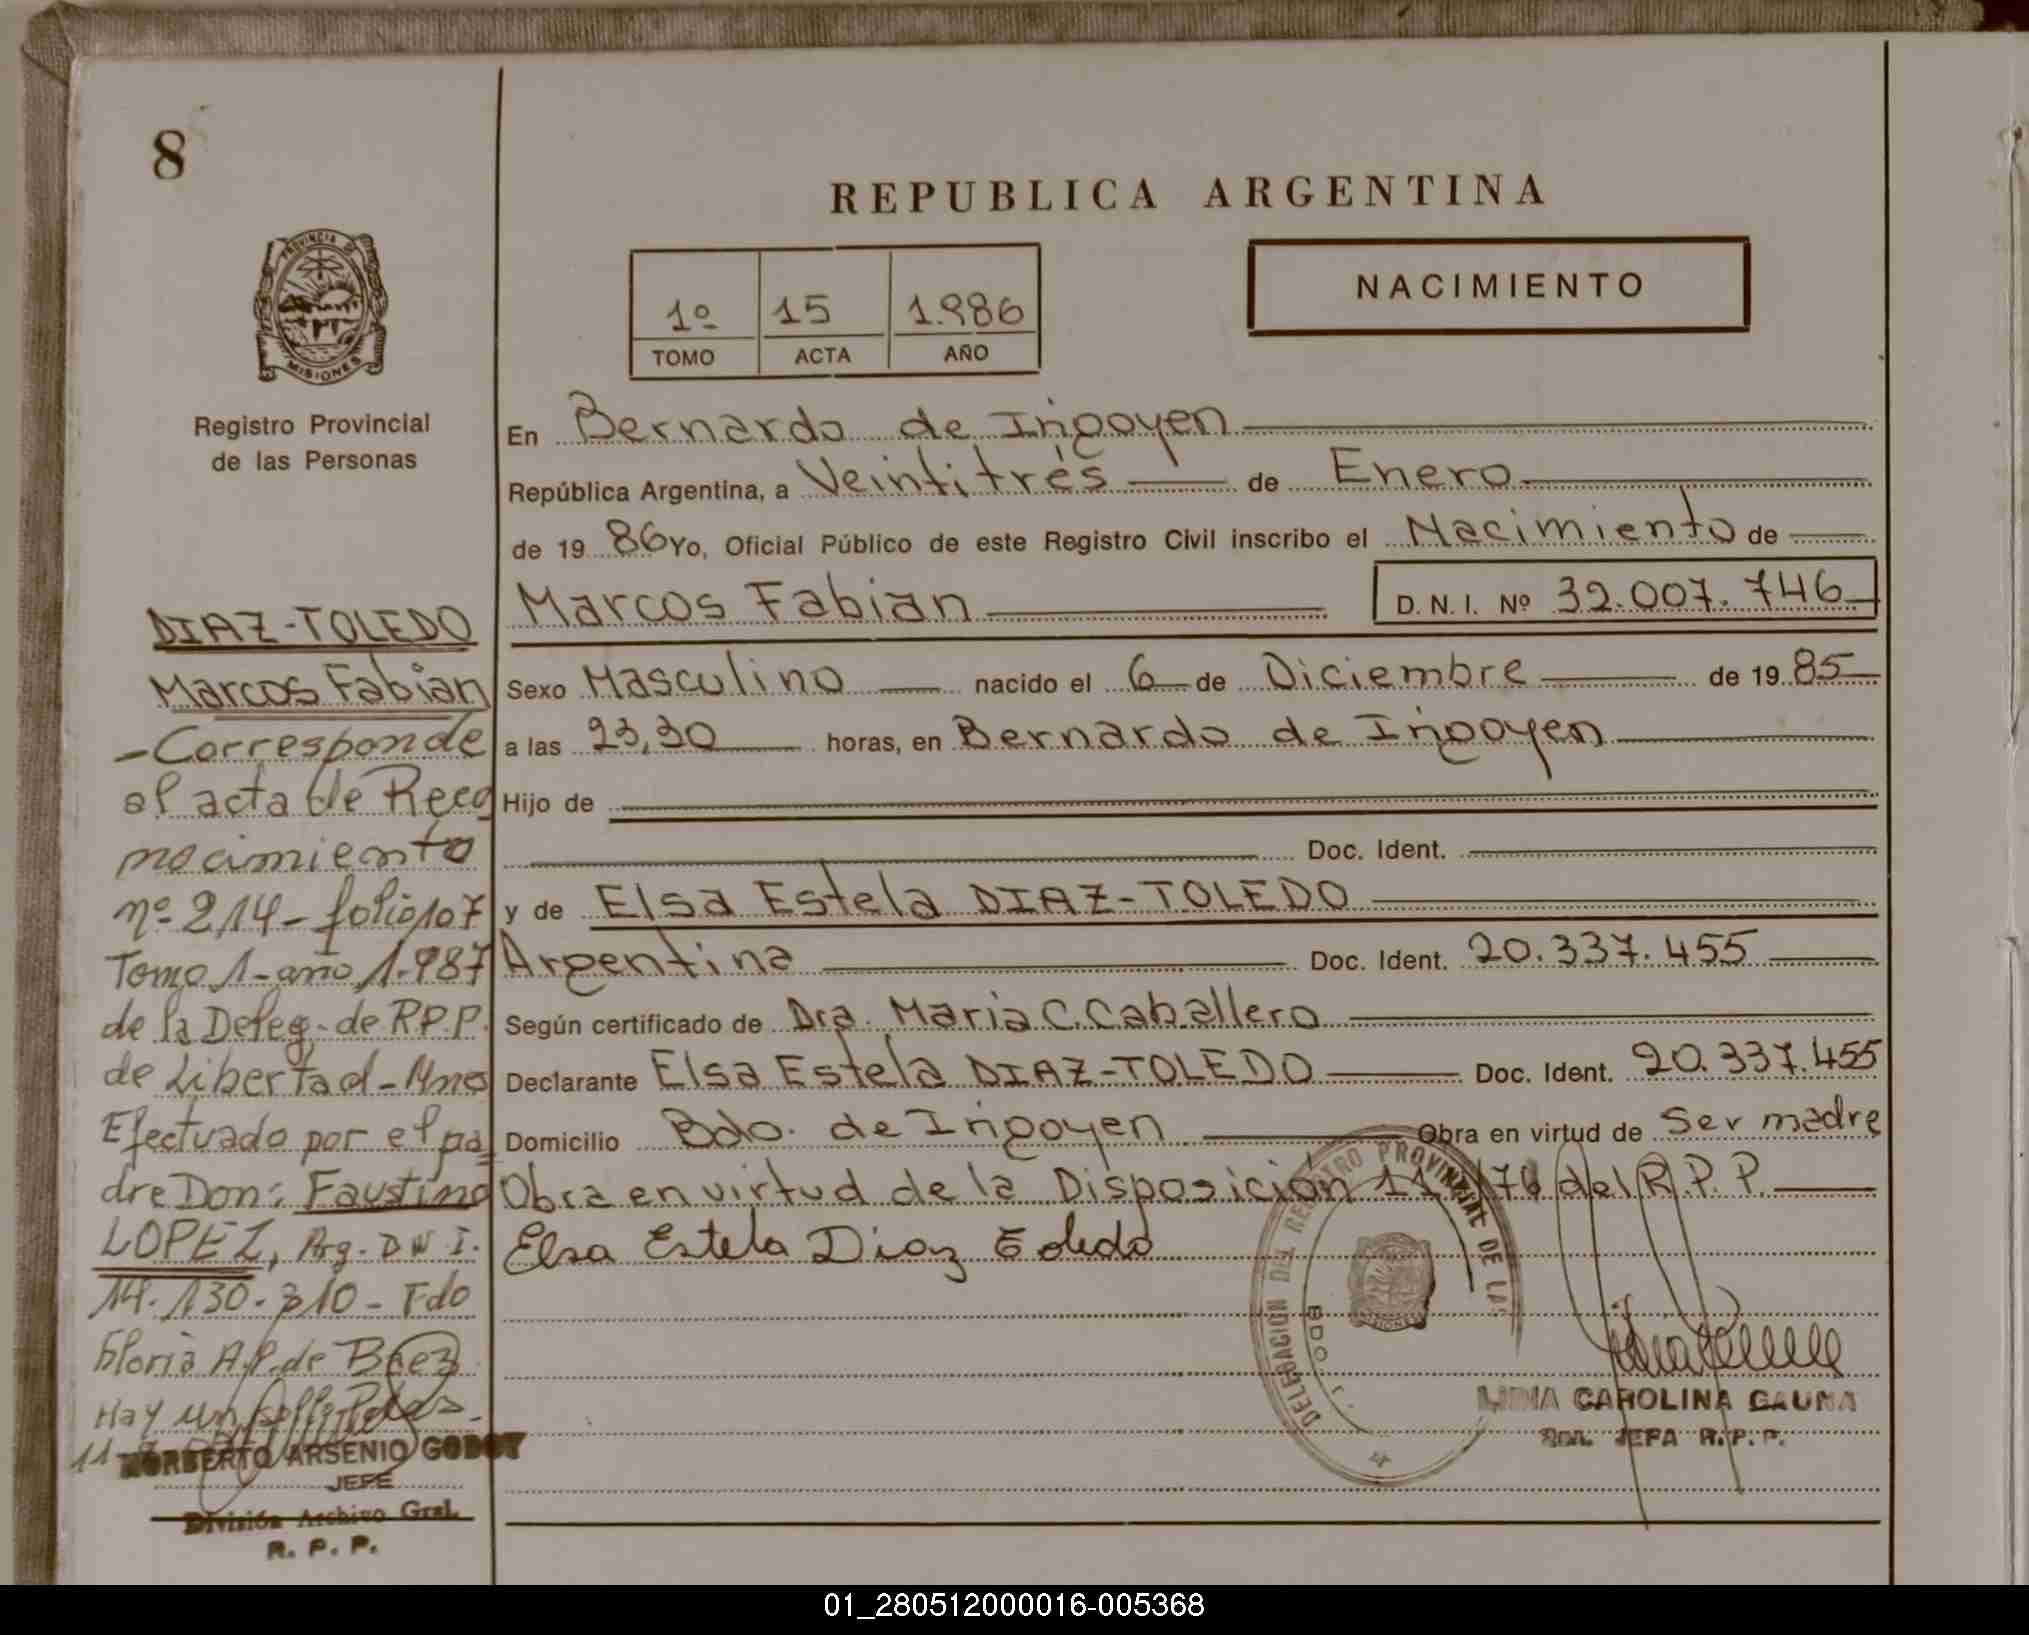 8
PROVINCIA DE
MISIONES
Registro Provincial
de las Personas
DIAZ-TOLEDO
Marcos Fabian
- Corresponde
al acta de Reco
nocimiento
nº 214 - folio 107
Tomo 1 - año 1.987
de la Deleg. de R.P.P.
de Libertad - Mnes
Efectuado por el pa
dre Don: Faustino
LOPEZ, Arg. D N I.
14.130.310 - Fdo
Gloria A.P. de Baez
Hay un sello
11
NORBERTO ARSENIO GODOY
JEFE
División Archivo Gral.
R. P. P.
REPUBLICA ARGENTINA
1º 15 1.986
TOMO ACTA AÑO
NACIMIENTO
En Bernardo de Irigoyen
República Argentina, a Veintitrés de Enero
de 19 86 Yo, Oficial Público de este Registro Civil inscribo el Nacimiento de
Marcos Fabian D.N.I. Nº 32.007.746
Sexo Masculino nacido el 6 de Diciembre de 19 85
a las 23,30 horas, en Bernardo de Irigoyen
Hijo de
Doc. Ident.
y de Elsa Estela DIAZ-TOLEDO
Argentina Doc. Ident. 20.337.455
Según certificado de Dra. Maria C. Caballero
Declarante Elsa Estela DIAZ-TOLEDO Doc. Ident. 20.337.455
Domicilio Bdo. de Irigoyen Obra en virtud de Ser madre
Obra en virtud de la Disposición 11/76 del R.P.P.
Elsa Estela Diaz Toledo
DELEGACION DEL REGISTRO PROVINCIAL DE LAS
BDO. I.
MISIONES
LIDIA CAROLINA GAUNA
JEFA R.P.P.
01_280512000016-005368